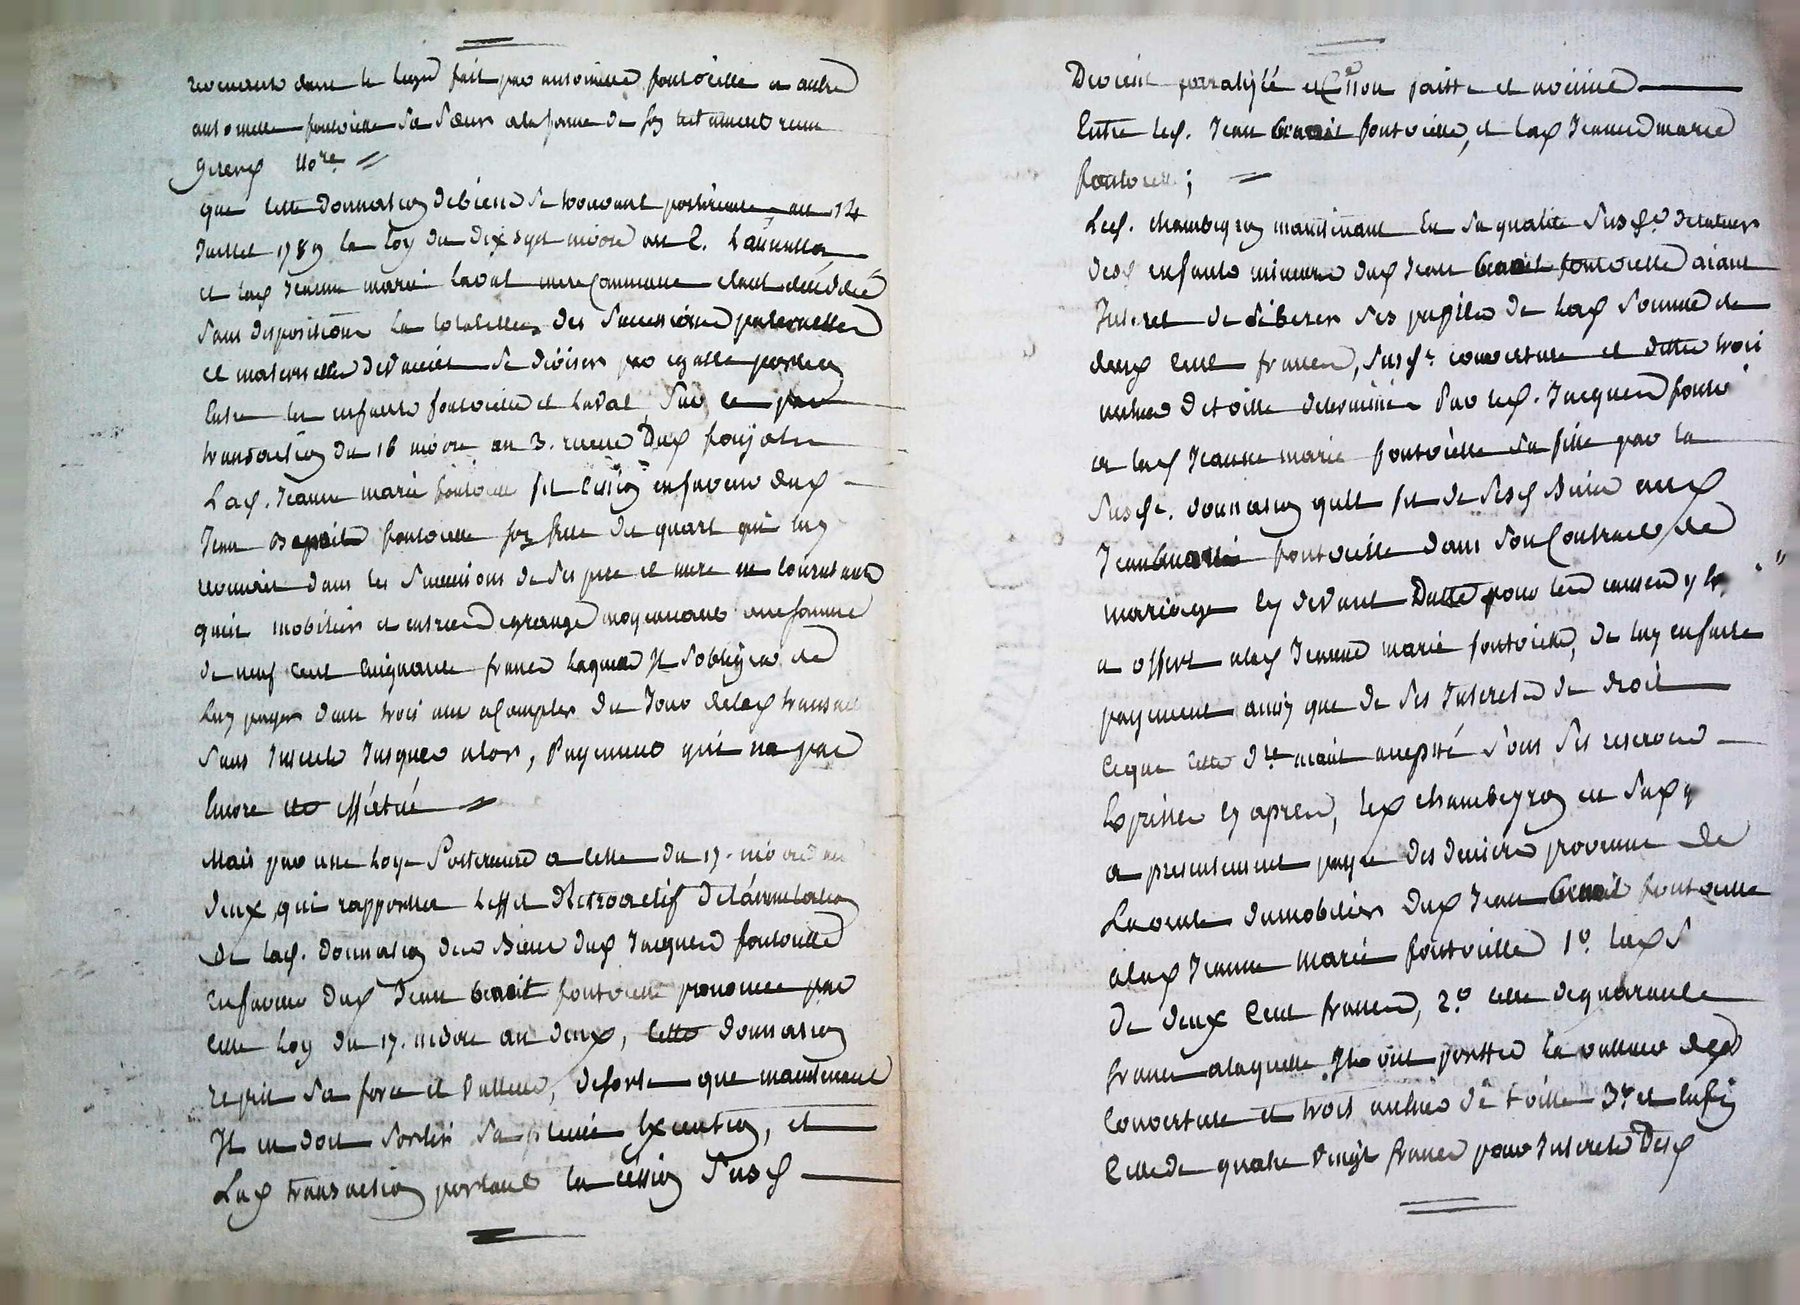 revenant dans le legs fait par antoinette fontvieille a autre
antoinette fontvieille sa sœur a la forme de son testament reçu
Nore
que cette donnation de biens se trouvant postérieure au 14
Juillet 1789 la loy du dix sept nivose an 2. l'annulla
et lad Jeanne marie laval mere Commune etant décédée
sans dispositions la totalité des successions paternelle
et maternelle devoient se diviser par egalle portion
Entre les enfants fontvieille et laval, Sur ce par
transaction du 16 nivose an 3. reçue Dud
Lad. Jeanne marie fontvieille fit cession en faveur dud
Jean Benoit fontvieille son frere du quart qui luy
revenoit dans les successions de ses pere et mere en
quoit mobilier et moyenant une somme
de neuf cent cinquante francs laquelle Il s'obligea de
luy payer dans trois ans a Compter du Jour de lad transac
sans Interets Jusques alors, Payement qui na pas
Encore eté effectué
Mais par une Loye Posterieure a celle du 17. nivose an
deux qui rapportta l'effet Retroactif de l'annulation
de lad. donnation des Biens dud Jacques fontvieille
en faveur dud Jean benoit fontvieille prononcée par
cette Loy du 17. nivose an deux, cette donnation
reprit sa force et valleur, de sorte que maintenant
Il en doit sortir sa pleine Execution, et
Lad transaction portant la cession Susd
Devient parralisée et Comme non faitte et avenue
Entre led. Jean Benoit fontvieille, et lad Jeanne marie
fontvieille;
Led. chambeyron maintenant En sa qualité Susde. de tuteur
desd enfants mineurs dud Jean Benoit fontvieille aiant
Interet de liberer ses pupiles de lad somme de
deux cent francs, Susde. couverture et dittes trois
aulnes de toille determinée Par led. Jacques fontvi
a lad Jeanne marie fontvieille sa fille par la
Susde. donnation quil fit de Sesd Biens aud
Jean Benoit fontvieille dans son Contract de
mariage cy devant Datté pour les causes y
a offert a lad Jeanne marie fontvieille, de luy en faire
payement ainsy que de ses Interets de droit
Ceque cette dre aiant accepté sous ses reserves
Exprimée cy apres, led chambeyron en sad q
a presentement payé des deniers provenus de
La vente du mobilier dud Jean Benoit fontvieille
a lad Jeanne marie fontvieille 1°. lad s
de deux cent francs, 2°. celle de quarante
francs a laquelle Ils ont portté la valleur desd
couverture et trois aulnes de toille 3°. et enfin
Celle de quatre vingt francs pour Interets Desd